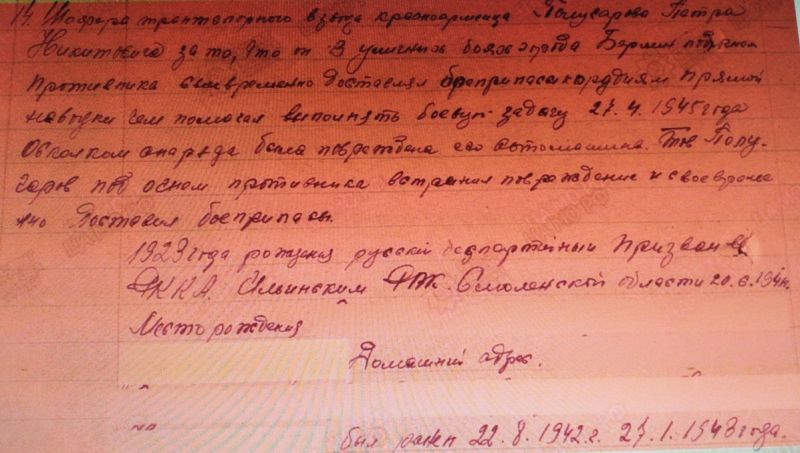 14. Шофера транспортного взвода красноармейца Полугарова Петра
Никитовича за то, что он в уличных боях города Берлин под огнем
противника своевременно доставлял боеприпасы к орудиям прямой
наводки чем помогал выполнять боевую задачу 27.4.1945 года
Осколком снаряда была повреждена его автомашина. Тов Полу-
гаров под огнем противника устранил повреждение и своевремен
но доставил боеприпасы.
1923 года рождения русский беспартийный призван в
РККА. Ильинским РВК. Смоленской области 20.6.1941г.
Место рождения
Домашний адрес.
был ранен 22.8.1942г. 27.1.1943 года.